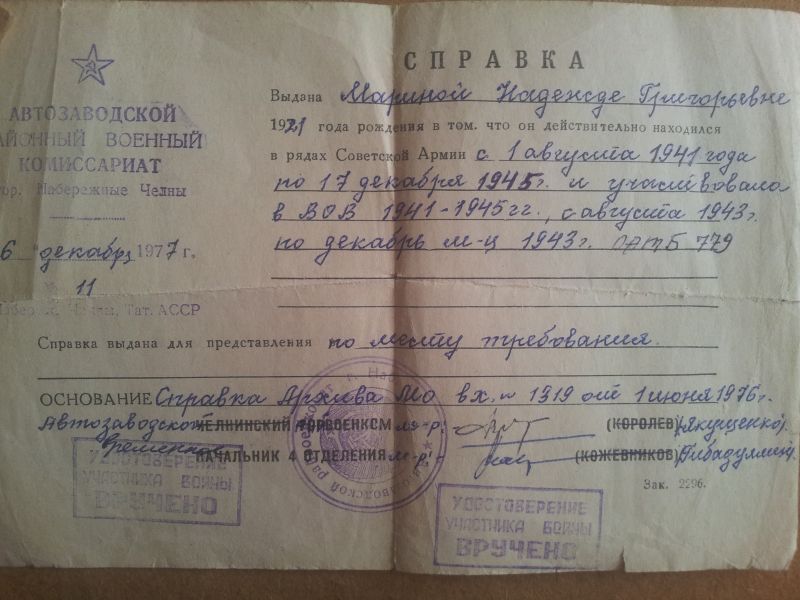 СПРАВКА
АВТОЗАВОДСКОЙ
РАЙОННЫЙ ВОЕННЫЙ
КОМИССАРИАТ
гор. Набережные Челны
6 декабря 1977 г.
№ 11
Набереж. Челны, Тат. АССР
Выдана Мариной Надежде Григорьевне
1921 года рождения в том, что он действительно находился
в рядах Советской Армии с 1 августа 1941 года
по 17 декабря 1945 г. и участвовала
в ВОВ 1941-1945 гг., с августа 1943 г.
по декабрь м-ц 1943 г. ОАТБ 779
Справка выдана для представления по месту требования.
ОСНОВАНИЕ Справка Архива МО вх. № 1319 от 1 июня 1976 г.
Автозаводской ЧЕЛНИНСКИЙ ГОРВОЕНКОМ (КОРОЛЕВ) (Якущенко)
временный НАЧАЛЬНИК 4 ОТДЕЛЕНИЯ м-р (КОЖЕВНИКОВ)
Зак. 2296.
УДОСТОВЕРЕНИЕ
УЧАСТНИКА ВОЙНЫ
ВРУЧЕНО
УДОСТОВЕРЕНИЕ
УЧАСТНИКА ВОЙНЫ
ВРУЧЕНО